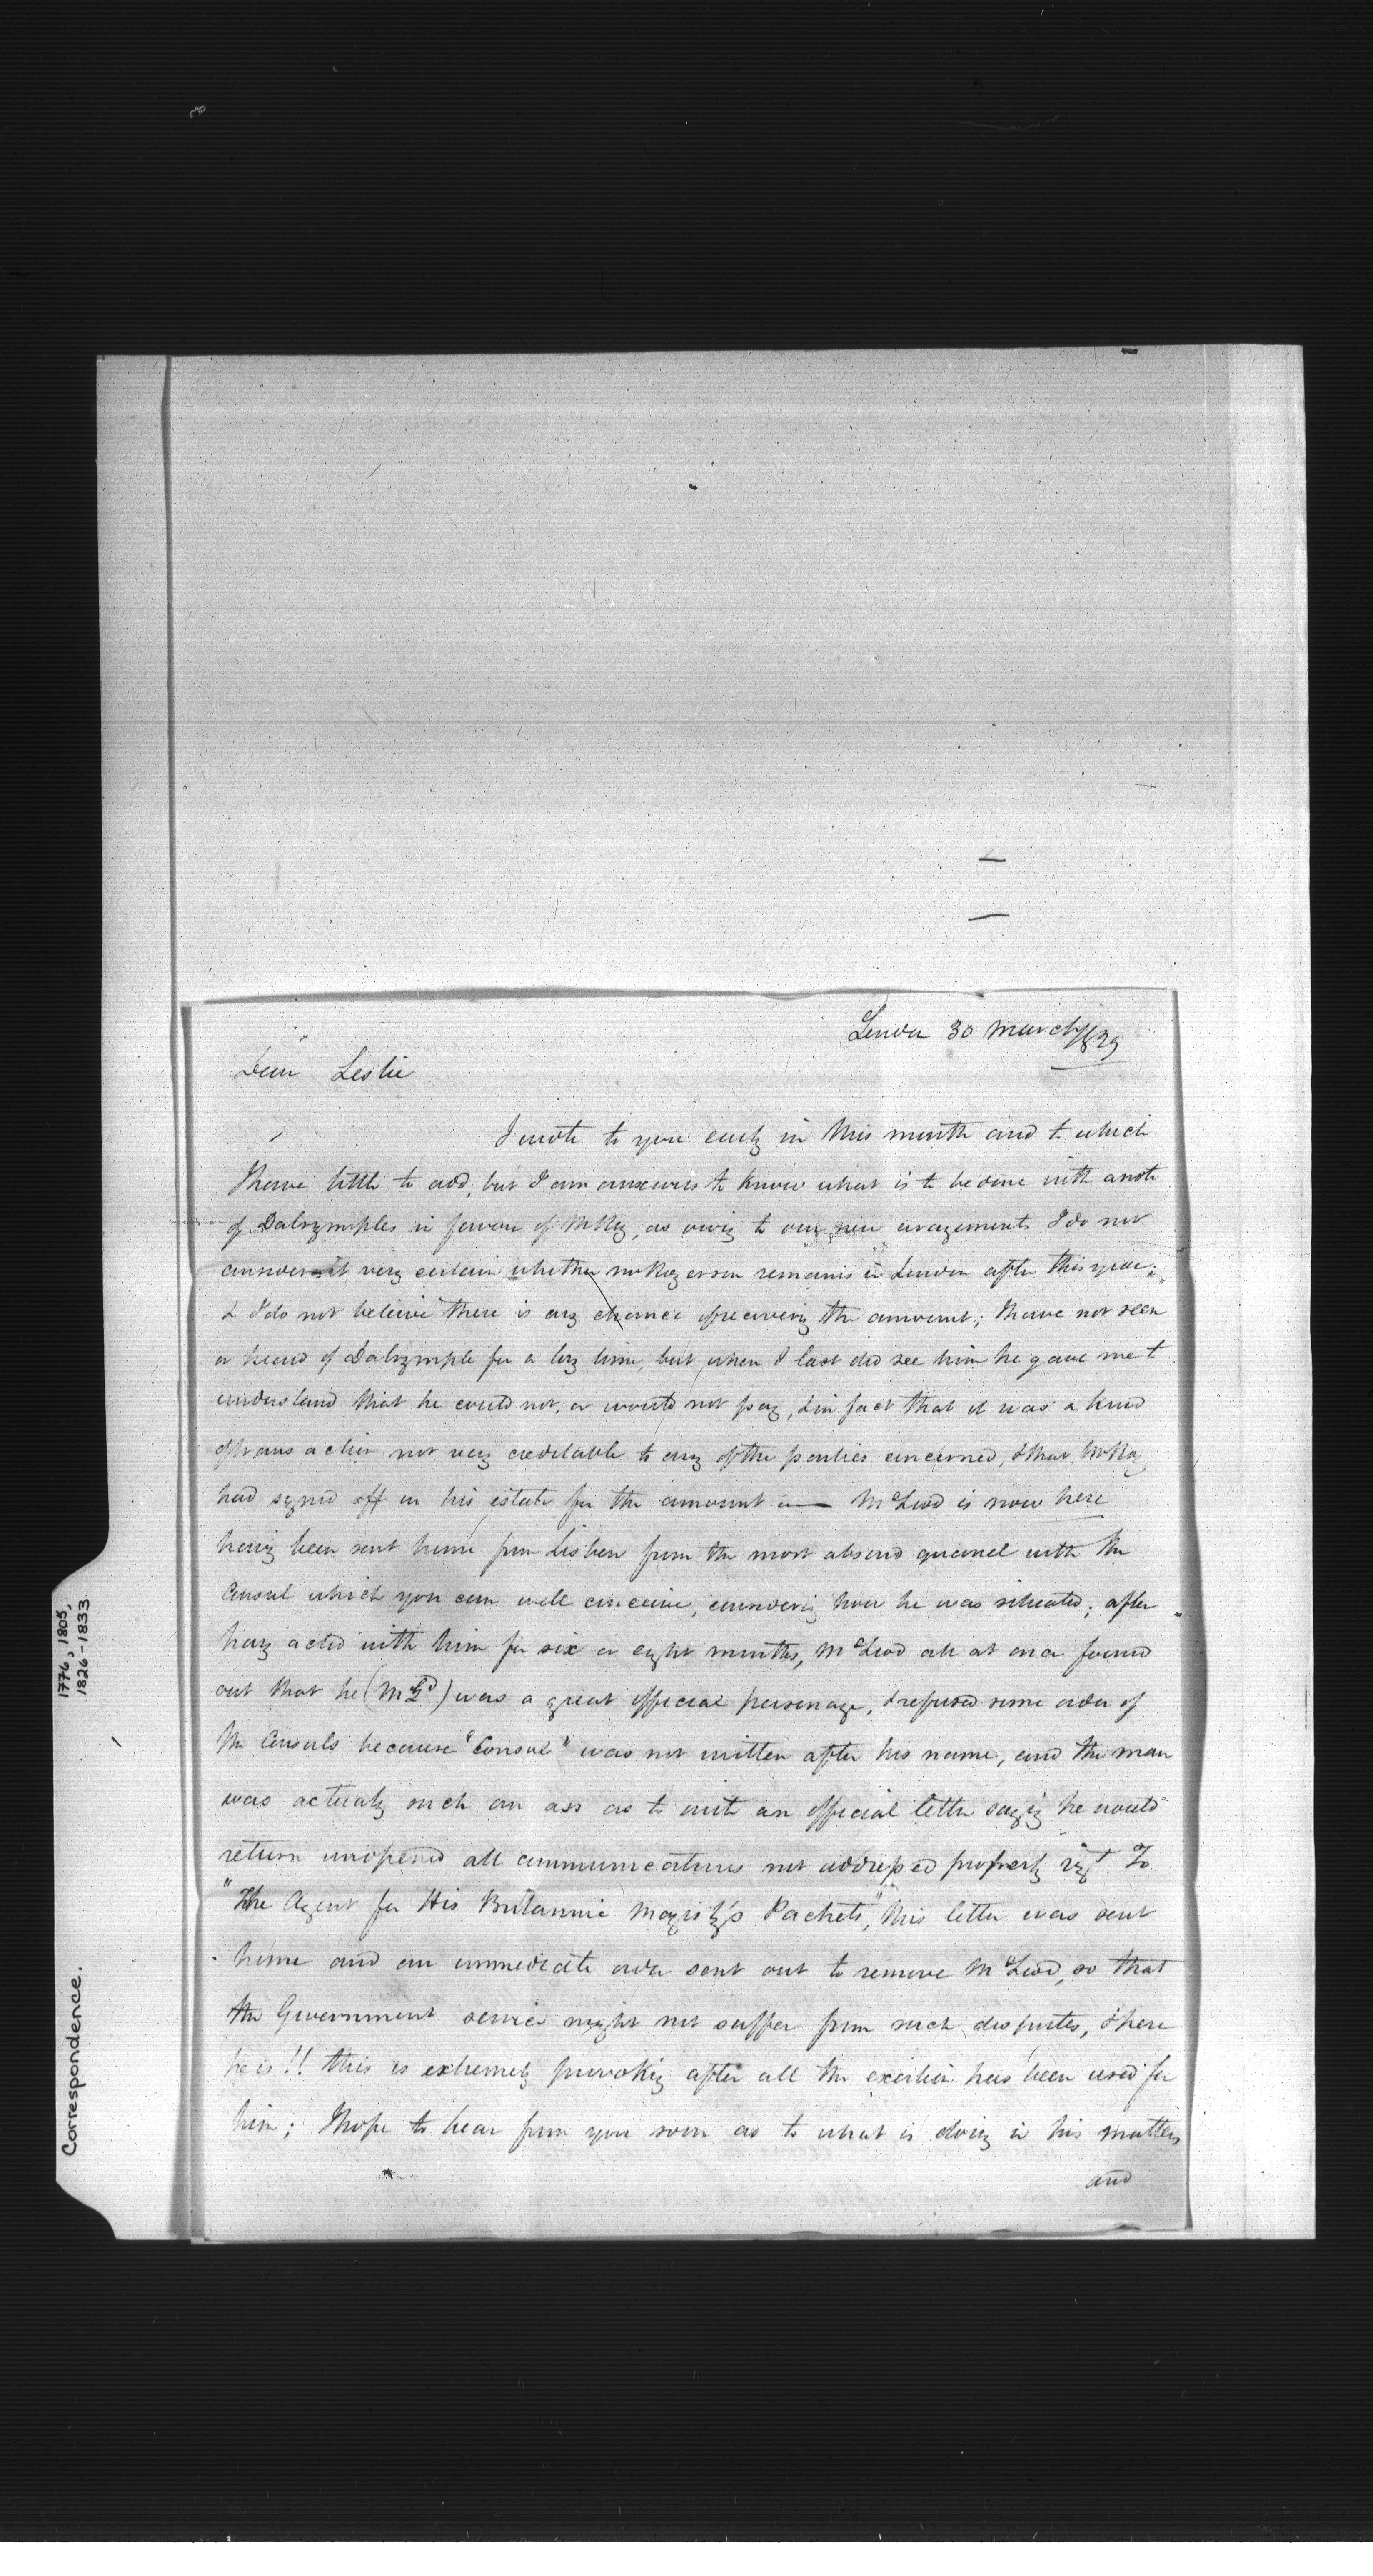 London 30 March 1829
Dear Leslie
I wrote to you early in this month and to which
I have little to add, but I am anxious to know what is to be done with a note
of Dalrymples in favour of McKay, as owing to our new arangements I do not
consider it very certain whether remains in London after this year,
& I do not beleive there is any chance of receiving the amount; I have not seen
or heard of Dalrymple for a long time, but when I last did see him he gave me to
understand that he could not, or would not pay, & in fact that it was a kind
of transaction not very creditable to any of the parties concerned, & that McKay
had signed off on his estate for the amount — McLeod is now here
having been sent home from Lisbon from the most absurd quarrel with the
Consul which you can well conceive, considering how he was situated; after
having acted with him for six or eight months, McLeod all at once found
out that he (McLd) was a great official personage, & refused some order of
the Consuls because "Consul" was not written after his name, and the man
was actually such an ass as to write an official letter saying he would
return unopened all communications not addressed properly vizt To
"The Agent for His Britannic Majesty's Packets", this letter was sent
home and an immediate order sent out to remove McLeod, so that
the Government service might not suffer from such disputes, & here
he is!! this is extremely provoking after all the exertion has been used for
him; I hope to hear from you soon as to what is doing in his matters
and
Correspondence.
1776, 1805,
1826-1833